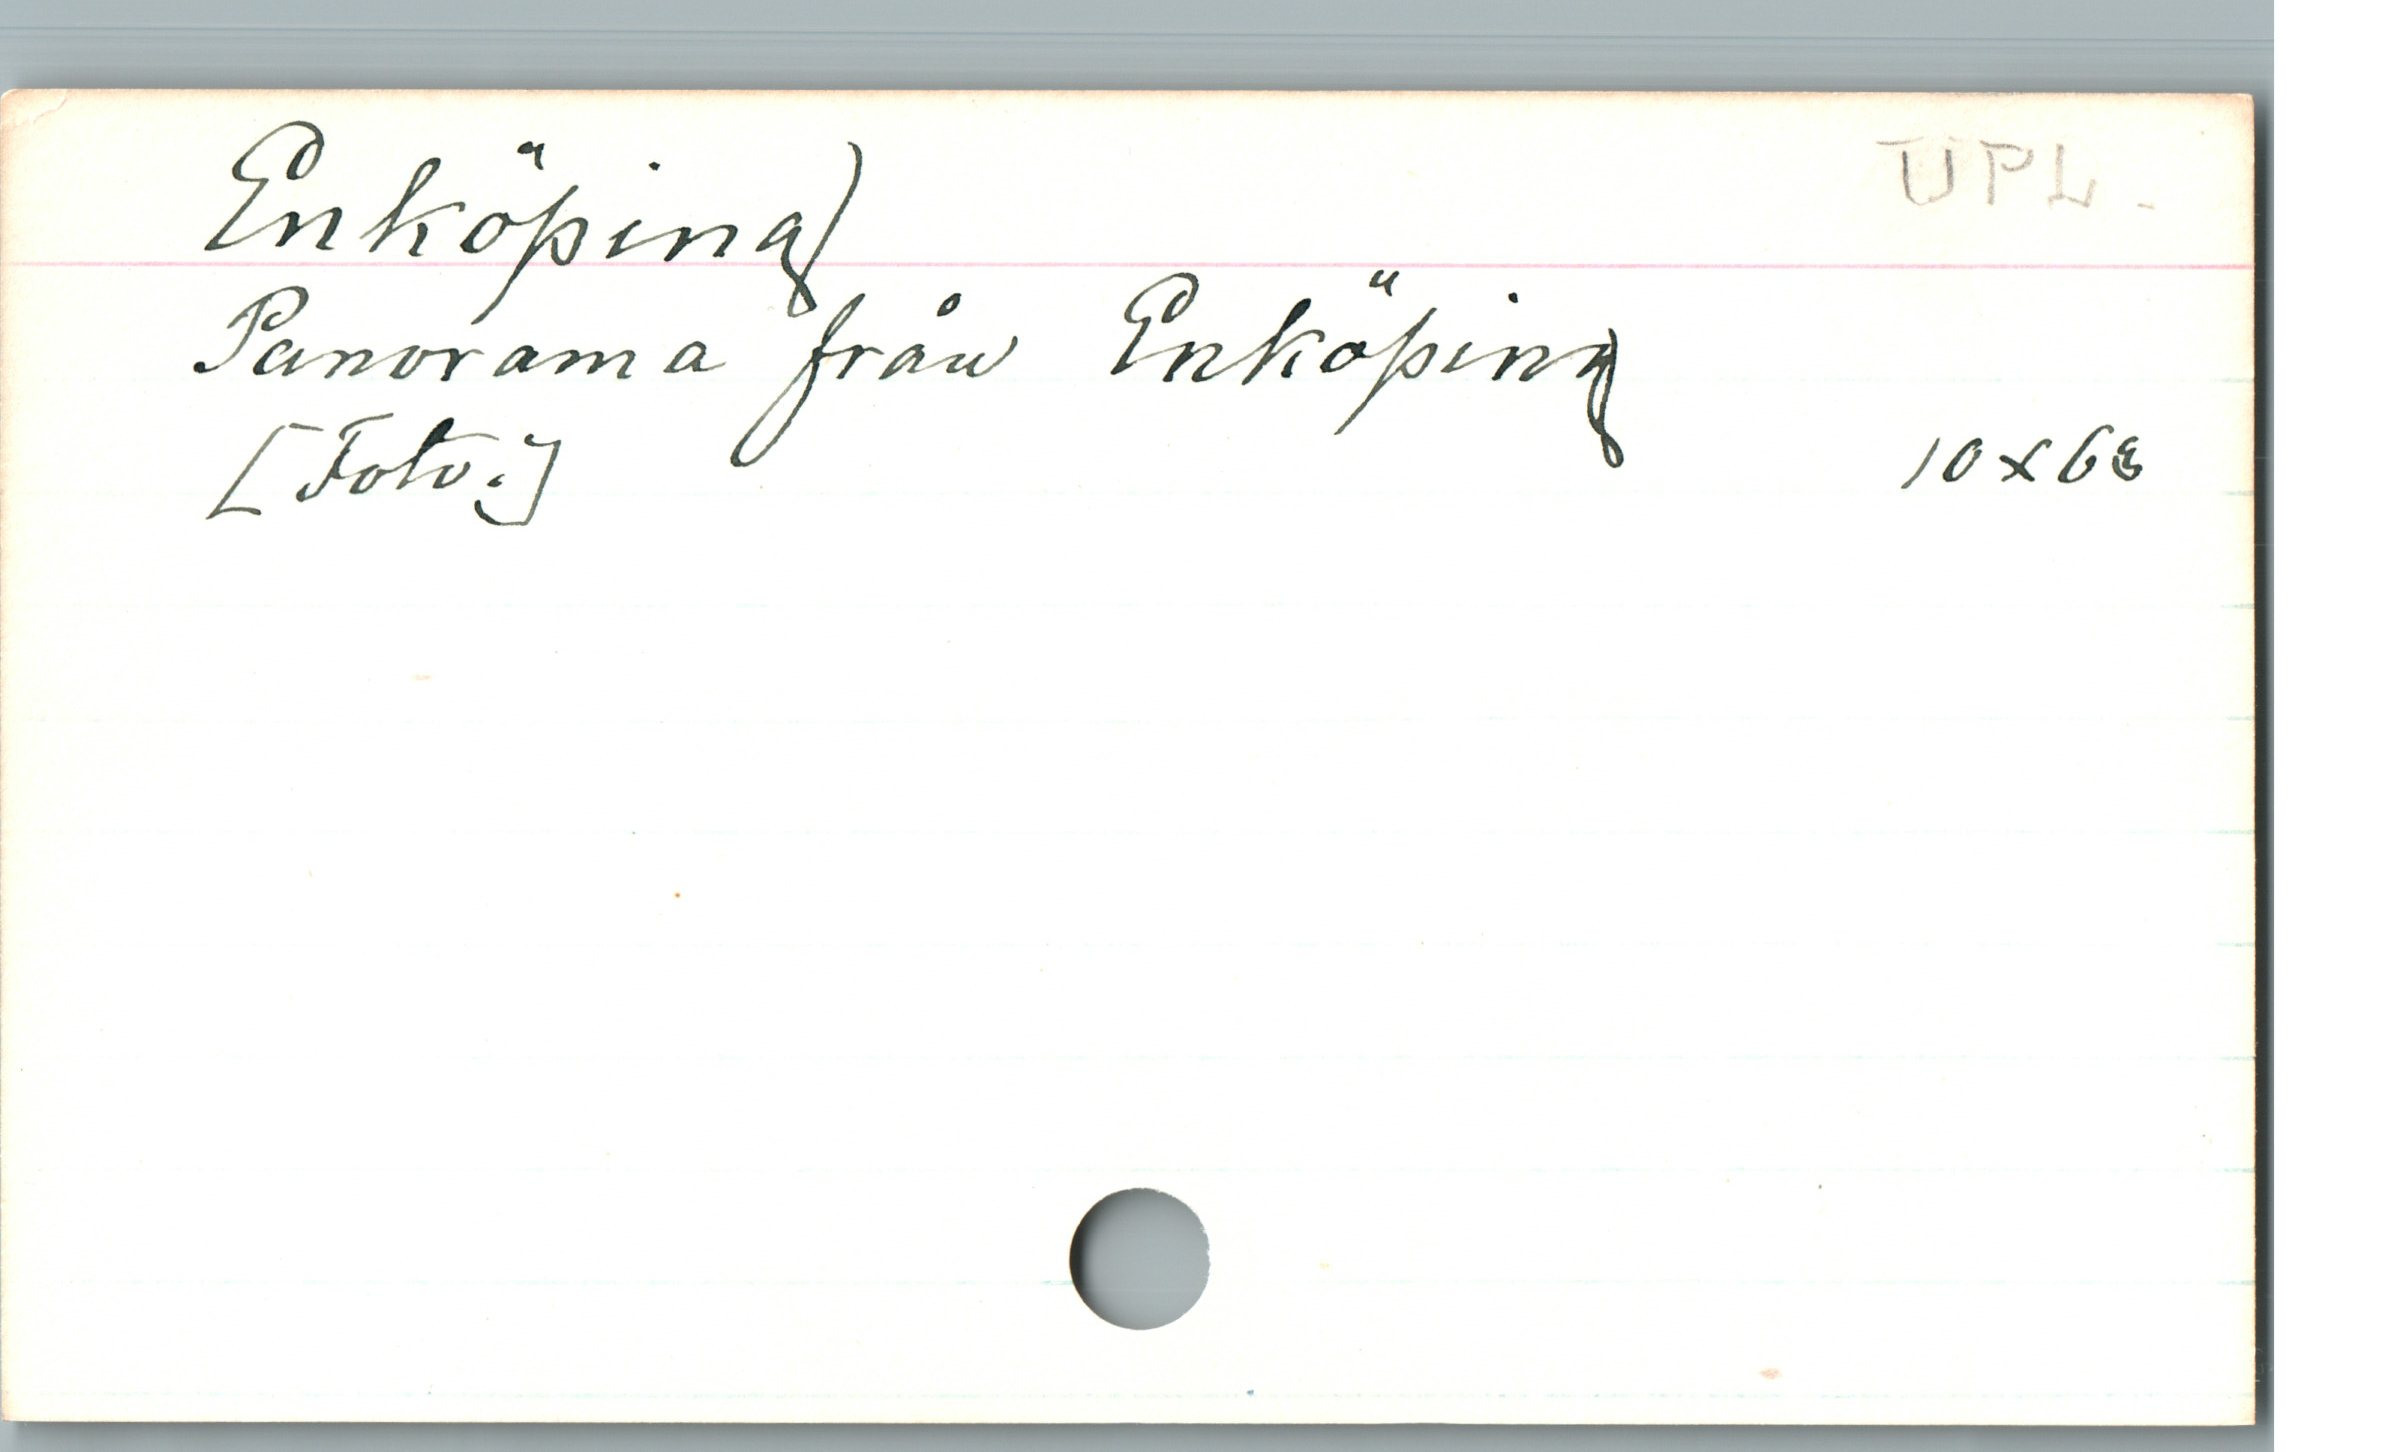 Enköping)
UPL.
Panorama från Enköping
[Foto:]
10x63